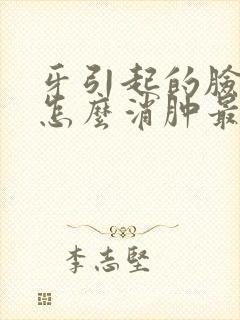 牙引起的臉
怎麼消肿最
李志堅